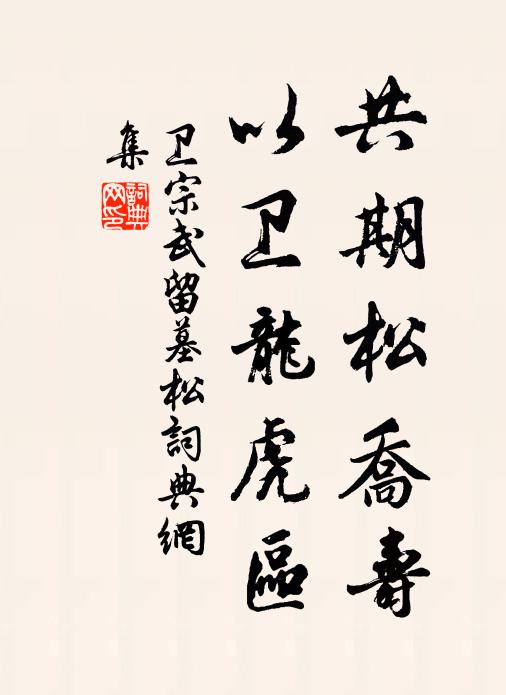 共期松喬壽
以卫龍虎區
卫宗武留墓松詞典網
集
詞典網印